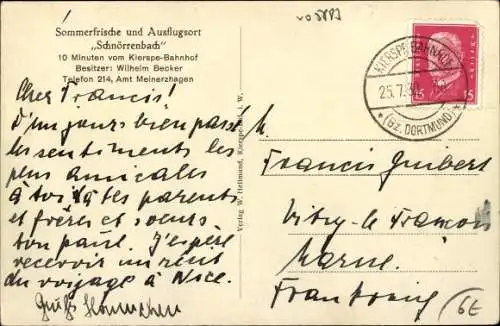 Sommerfrische und Ausflugsort
"Schnörrenbach"
10 Minuten vom Kierspe-Bahnhof
Besitzer: Wilhelm Becker
Telefon 214, Amt Meinerzhagen
Cher Francis!
D'un jours bien passé
les sentiments les
plus amicales
à toi, tes parents
et frères et soeurs
ton paul. J'espère
recevoir un récit
du voyage à Nice.
Gruß
Verlag W. Hellmund, Kierspe-Bahnhof, W.
KIERSPE BAHNHOF
25.7.30
* (BZ. DORTMUND) *
15 15
M.
Francis Guibert
Vitry-le François
Marne
Frankreich
6E